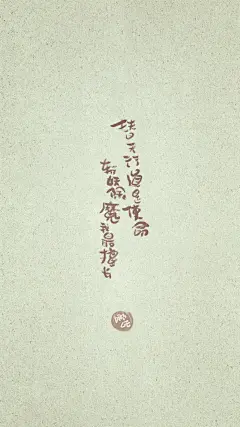 替天行道是使命
斩妖除魔我最擅长